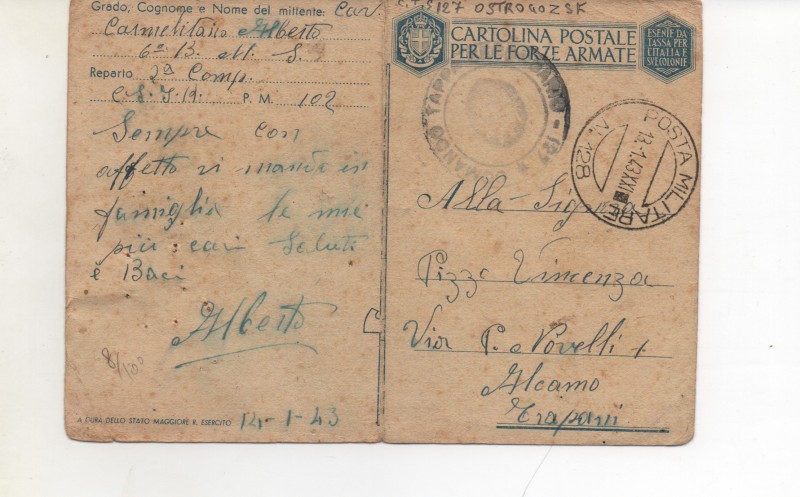 Grado, Cognome e Nome del mittente: Cav
Carmelitano Alberto
6º B. M. S.
Reparto 2ª Comp.
C S I R. P. M. 102
Sempre con
affetto vi mando in
famiglia le mie
più cari saluti
e Baci
Alberto
8/10º
A CURA DELLO STATO MAGGIORE R. ESERCITO 14-1-43
127 OSTROGOZSK
CARTOLINA POSTALE
PER LE FORZE ARMATE
ESENTE DA
TASSA PER
L'ITALIA E
SUE COLONIE
127
POSTA MILITARE
13.1.43 XXI
N. 128
Alla Sig
Pizzo Vincenza
Via P. Novelli 1
Alcamo
Trapani